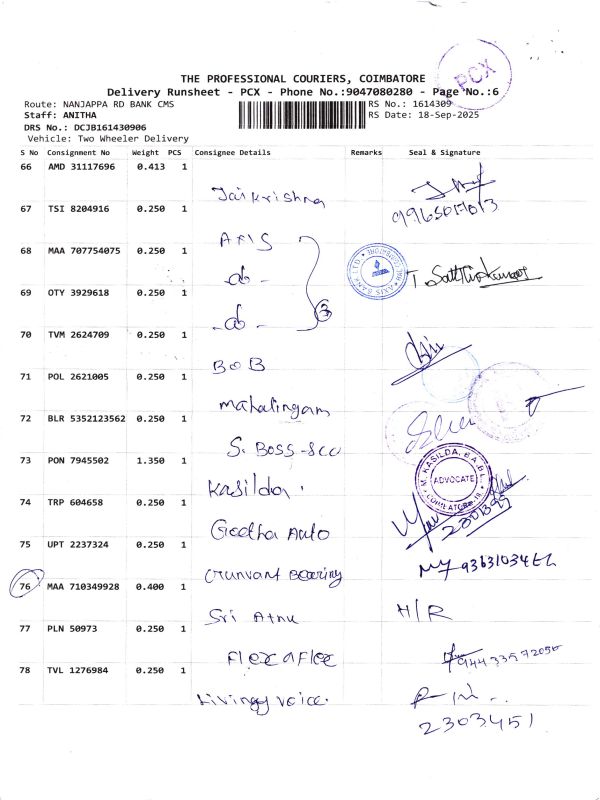 PCX
THE PROFESSIONAL COURIERS, COIMBATORE
Delivery Runsheet - PCX - Phone No.:9047080280 - Page No.:6
Route: NANJAPPA RD BANK CMS
RS No.: 1614309
Staff: ANITHA
RS Date: 18-Sep-2025
DRS No.: DCJB161430906
Vehicle: Two Wheeler Delivery
S No Consignment No Weight PCS Consignee Details Remarks Seal & Signature
66 AMD 31117696 0.413 1
Jaikrishna
67 TSI 8204916 0.250 1
AXIS
68 MAA 707754075 0.250 1
-do-
T. Sathiskumar
69 OTY 3929618 0.250 1
-do-
3
70 TVM 2624709 0.250 1
BOB
71 POL 2621005 0.250 1
Mahalingam
72 BLR 5352123562 0.250 1
S. Boss
73 PON 7945502 1.350 1
Kasilda.
M. KASILDA, B.A.B.L.
ADVOCATE
74 TRP 604658 0.250 1
Geetha Auto
75 UPT 2237324 0.250 1
Bearing
76 MAA 710349928 0.400 1
Sri
H/R
77 PLN 50973 0.250 1
Flex a Flex
78 TVL 1276984 0.250 1
Living Voice.
2303451